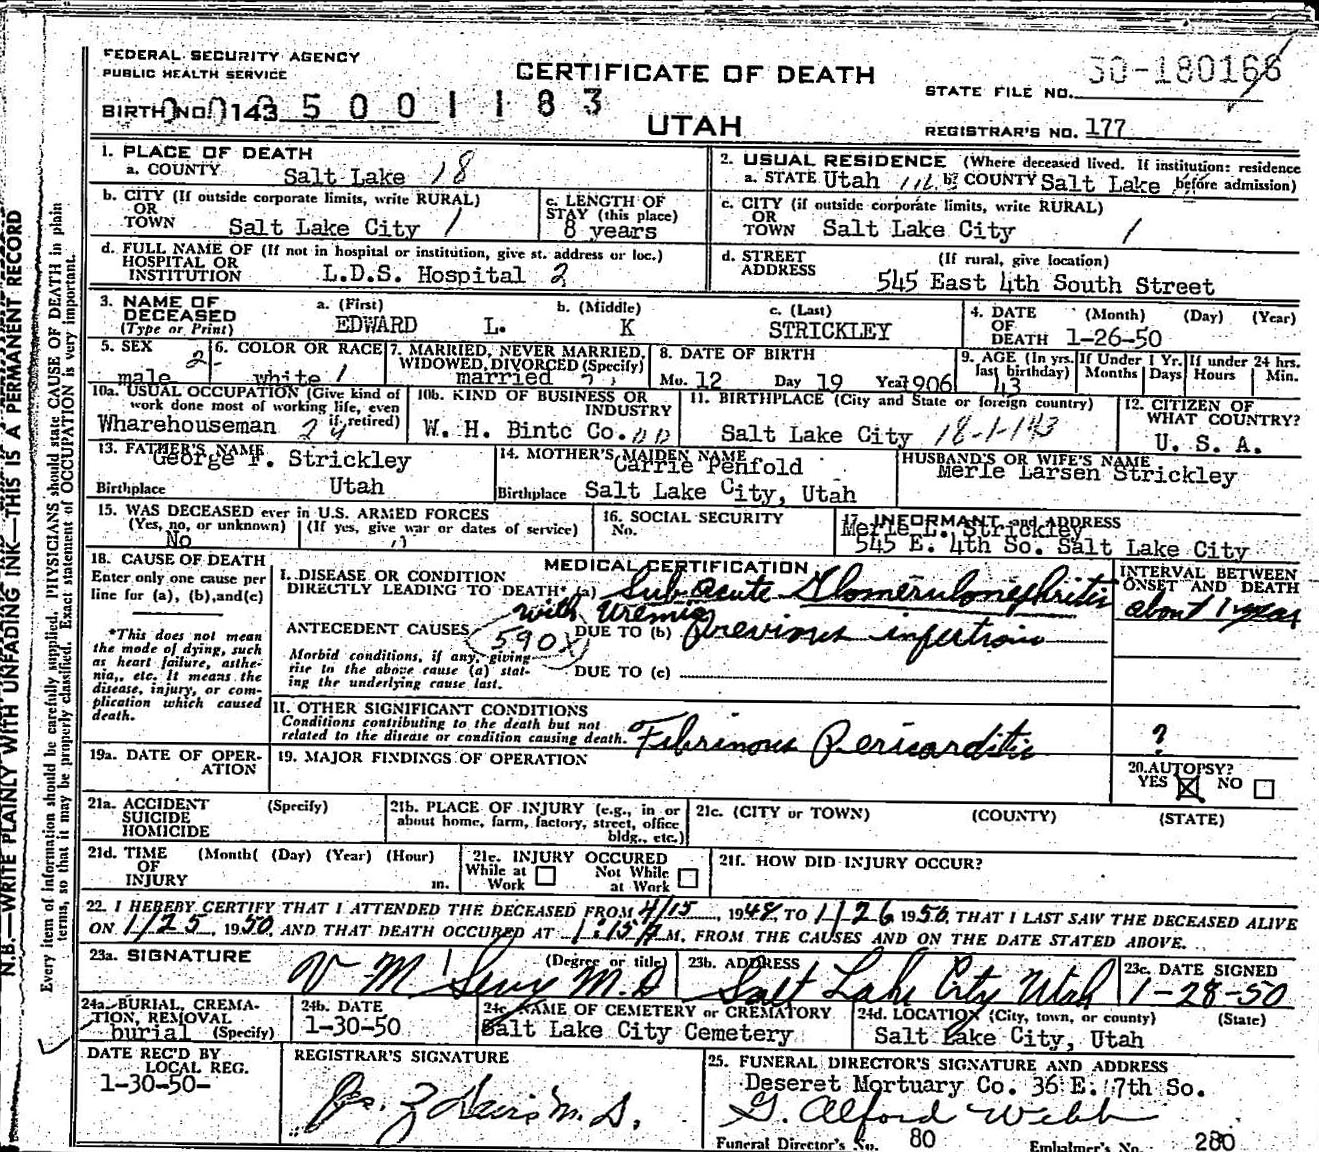 FEDERAL SECURITY AGENCY
PUBLIC HEALTH SERVICE
CERTIFICATE OF DEATH
STATE FILE NO. 50-180168
BIRTH NO. 143 5 0 0 1 1 8 3
UTAH
REGISTRAR'S NO. 177
1. PLACE OF DEATH
a. COUNTY Salt Lake 18
2. USUAL RESIDENCE (Where deceased lived. If institution: residence before admission)
a. STATE Utah b. COUNTY Salt Lake
b. CITY (If outside corporate limits, write RURAL) OR TOWN Salt Lake City 1
c. LENGTH OF STAY (this place) 8 years
c. CITY (if outside corporate limits, write RURAL) OR TOWN Salt Lake City 1
d. FULL NAME OF (If not in hospital or institution, give st. address or loc.) HOSPITAL OR INSTITUTION L.D.S. Hospital 2
d. STREET ADDRESS (If rural, give location) 545 East 4th South Street
3. NAME OF DECEASED (Type or Print)
a. (First) b. (Middle) c. (Last)
EDWARD L. K STRICKLEY
4. DATE OF DEATH (Month) (Day) (Year) 1-26-50
5. SEX male 2
6. COLOR OR RACE white 1
7. MARRIED, NEVER MARRIED, WIDOWED, DIVORCED (Specify) married
8. DATE OF BIRTH Mo. 12 Day 19 Year 1906
9. AGE (In yrs. last birthday) 43
If Under 1 Yr. Months Days
If under 24 hrs. Hours Min.
10a. USUAL OCCUPATION (Give kind of work done most of working life, even if retired) Wharehouseman 24
10b. KIND OF BUSINESS OR INDUSTRY W. H. Bintc Co.
11. BIRTHPLACE (City and State or foreign country) Salt Lake City 18-1-143
12. CITIZEN OF WHAT COUNTRY? U. S. A.
13. FATHER'S NAME George F. Strickley
Birthplace Utah
14. MOTHER'S MAIDEN NAME Carrie Penfold
Birthplace Salt Lake City, Utah
HUSBAND'S OR WIFE'S NAME
Merle Larsen Strickley
15. WAS DECEASED ever in U.S. ARMED FORCES
(Yes, no, or unknown) (If yes, give war or dates of service)
No
16. SOCIAL SECURITY No.
17. INFORMANT and ADDRESS
Merle L. Strickley
545 E. 4th So. Salt Lake City
18. CAUSE OF DEATH
Enter only one cause per line for (a), (b), and (c)
*This does not mean the mode of dying, such as heart failure, asthenia, etc. It means the disease, injury, or complication which caused death.
MEDICAL CERTIFICATION
INTERVAL BETWEEN ONSET AND DEATH
I. DISEASE OR CONDITION DIRECTLY LEADING TO DEATH* (a) Subacute Glomerulonephritis with Uremia
about 1 year
ANTECEDENT CAUSES 590X
DUE TO (b) previous infections
Morbid conditions, if any, giving rise to the above cause (a) stating the underlying cause last.
DUE TO (c)
II. OTHER SIGNIFICANT CONDITIONS
Conditions contributing to the death but not related to the disease or condition causing death. Fibrinous Pericarditis
?
19a. DATE OF OPERATION
19. MAJOR FINDINGS OF OPERATION
20. AUTOPSY? YES NO
21a. ACCIDENT SUICIDE HOMICIDE (Specify)
21b. PLACE OF INJURY (e.g., in or about home, farm, factory, street, office bldg., etc.)
21c. (CITY or TOWN) (COUNTY) (STATE)
21d. TIME OF INJURY (Month( (Day) (Year) (Hour) m.
21e. INJURY OCCURED While at Work Not While at Work
21f. HOW DID INJURY OCCUR?
22. I HEREBY CERTIFY THAT I ATTENDED THE DECEASED FROM 4/15, 1948, TO 1/26 1950, THAT I LAST SAW THE DECEASED ALIVE
ON 1/25, 1950, AND THAT DEATH OCCURED AT 1:15 A M. FROM THE CAUSES AND ON THE DATE STATED ABOVE.
23a. SIGNATURE (Degree or title) V M Sevy M.D
23b. ADDRESS Salt Lake City Utah
23c. DATE SIGNED 1-28-50
24a. BURIAL, CREMATION, REMOVAL (Specify) burial
24b. DATE 1-30-50
24c. NAME OF CEMETERY or CREMATORY Salt Lake City Cemetery
24d. LOCATION (City, town, or county) (State) Salt Lake City, Utah
DATE REC'D BY LOCAL REG. 1-30-50-
REGISTRAR'S SIGNATURE
25. FUNERAL DIRECTOR'S SIGNATURE AND ADDRESS
Deseret Mortuary Co. 36 E. 7th So.
G. Alford Webb
Funeral Director's No. 80 Embalmer's No. 280
N.B.—WRITE PLAINLY WITH UNFADING INK—THIS IS A PERMANENT RECORD
Every item of information should be carefully supplied. PHYSICIANS should state CAUSE OF DEATH in plain
terms, so that it may be properly classified. Exact statement of OCCUPATION is very important.